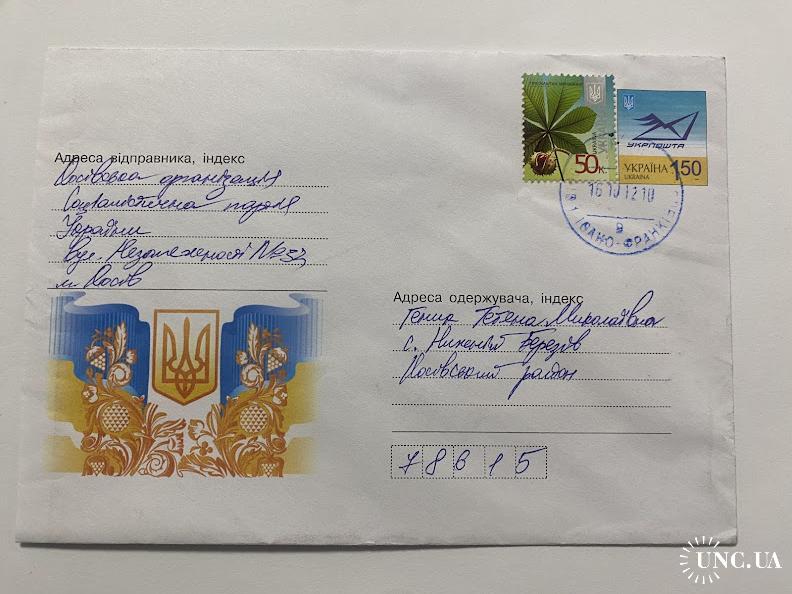 Адреса відправника, індекс
Косівська організація
Соціалістична партія
України
вул. Незалежності №
м. Косів
УКРАЇНА
50к.
УКРПОШТА
УКРАЇНА 1.50
UKRAINA
16 10 12 10
ІВАНО-ФРАНКІВ
Адреса одержувача, індекс
Миколаївна
с. Нижній Березів
Косівський район
78615
UNC.UA